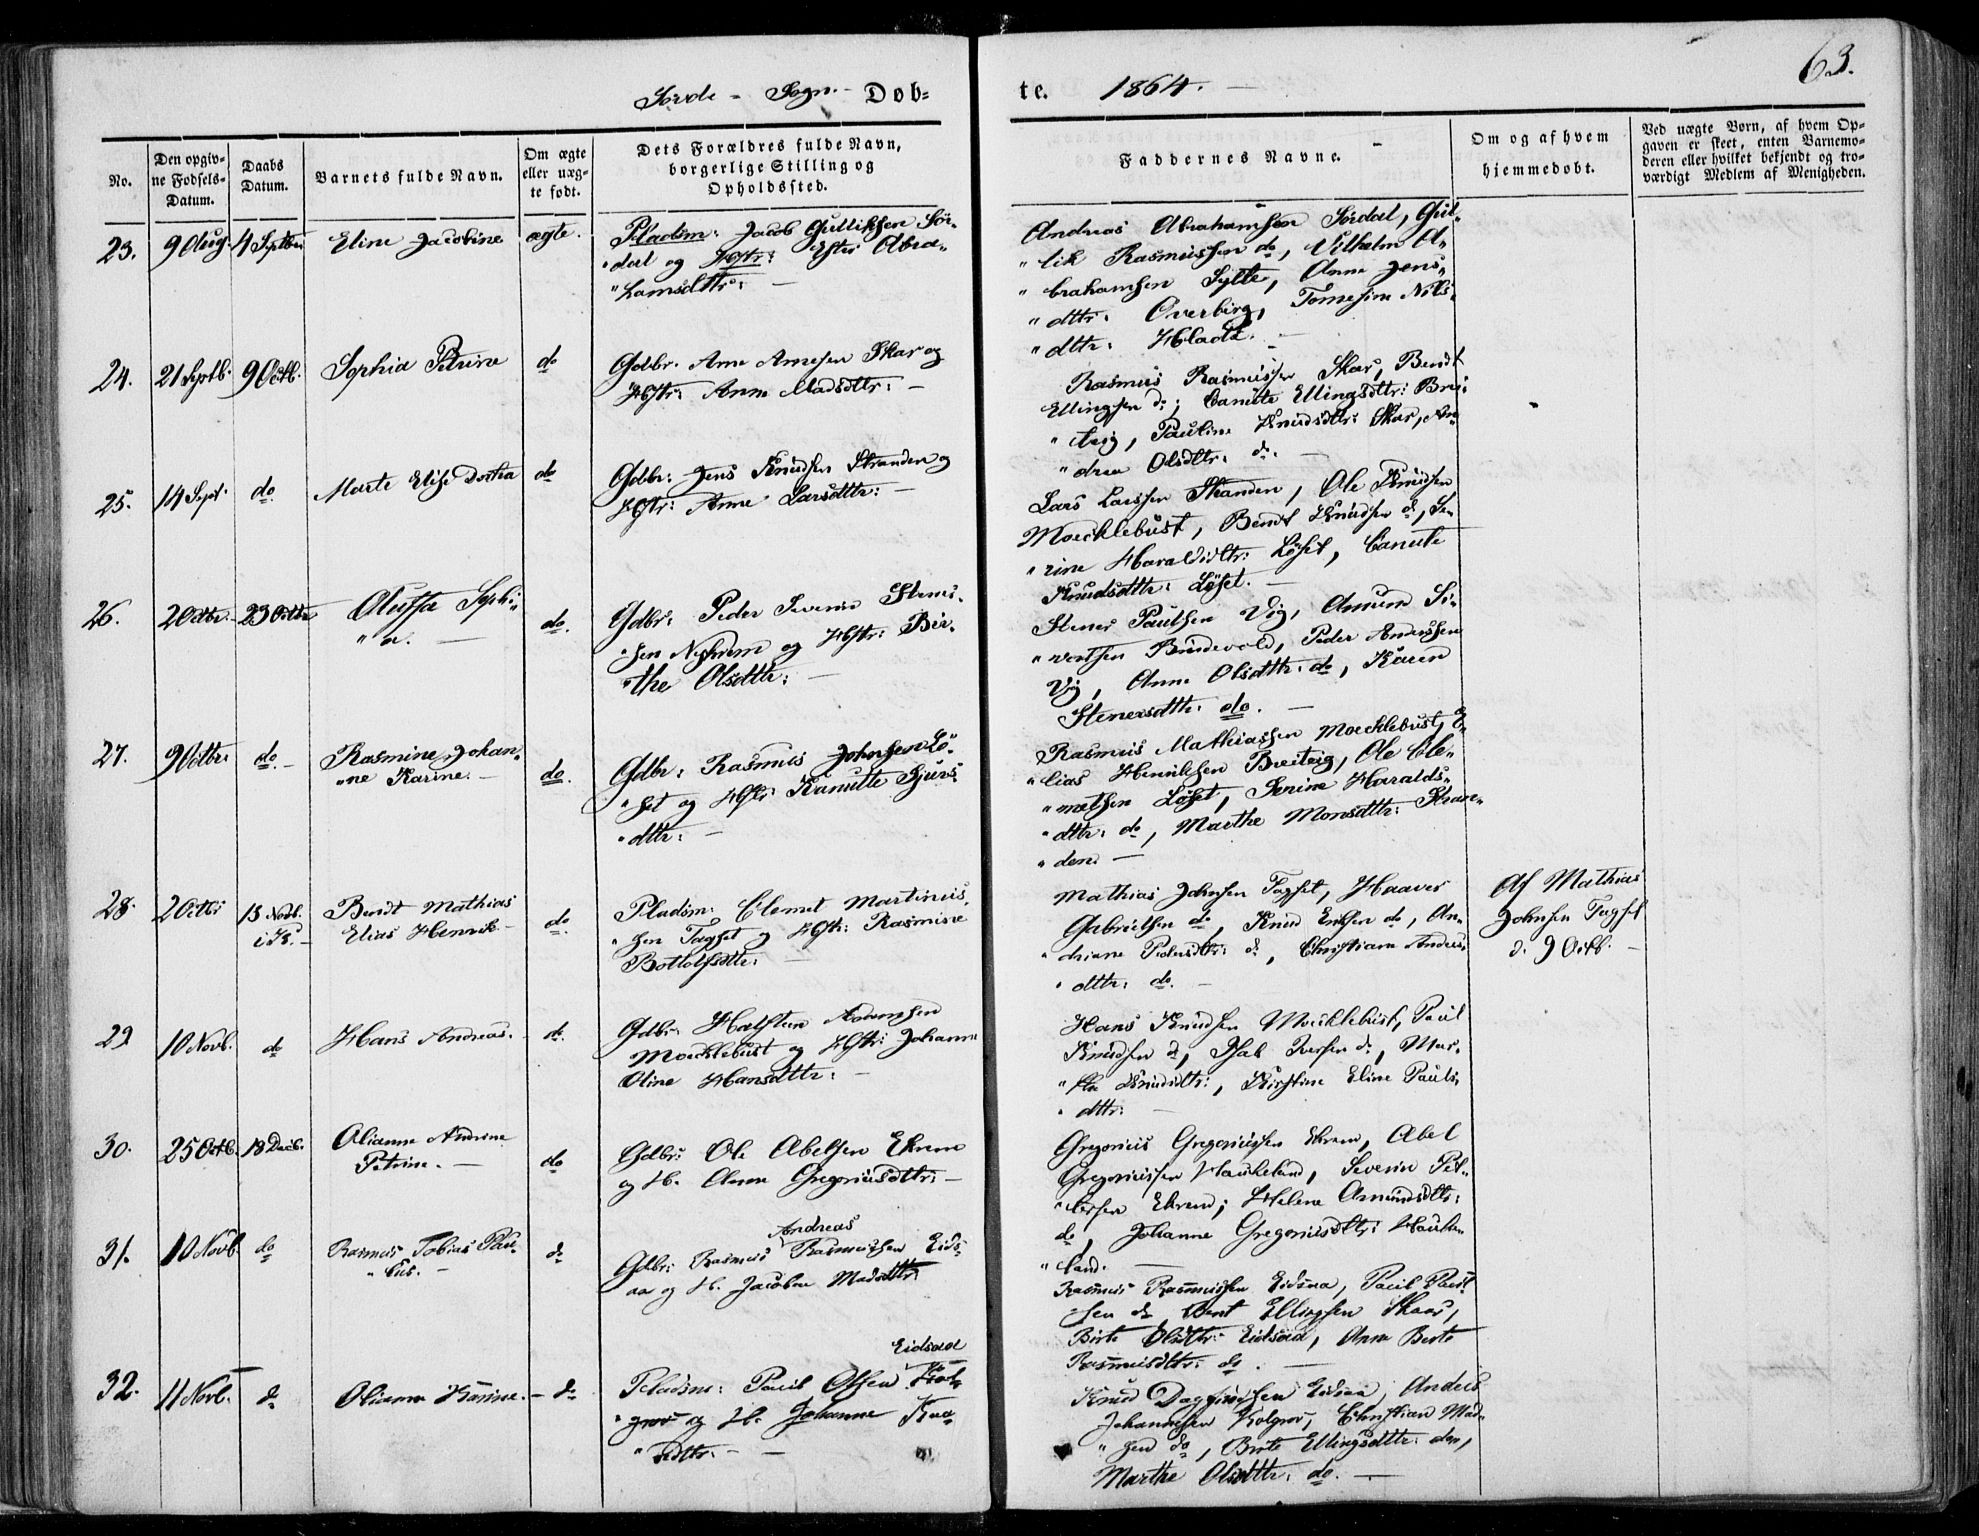 Søvde - Sogn. - Døb-
te. 1864. -
63.
No.
Den opgiv-
ne Fødsels-
Datum.
Daabs
Datum.
Barnets fulde Navn.
Om ægte
eller uæg-
te født.
Dets Forældres fulde Navn,
borgerlige Stilling og
Opholdssted.
Faddernes Navne.
Om og af hvem
hjemmedøbt.
Ved uægte Børn, af hvem Op-
gaven er skeet, enten Barnemo-
deren eller hvilket bekjendt og tro-
værdigt Medlem af Menigheden.
23. 9 Aug. 4 Septbr Eline Jacobine ægte.
Pladsm: Jacob Gulliksen Sør-
"dal og Hstr: Ester Abra-
"hamsdttr: -
Andreas Abrahamsen Sørdal, Gul-
"lik Rasmussen do, Vilhelm A-
"brahamsen Sylte, Anne Jens-
"dttr: Overbirg, Tomesine Nils-
"dttr: -
24. 21 Septb. 9 Octb. Sophia Petrine do
Gdbr. Arne Arnesen Skar og
Hstr: Anne Madsdttr: -
Rasmus Rasmussen Skar, Bendt
Ellingsen do; Canute Ellingsdttr: Brei-
"teig, Pauline Knudsdttr: Skar, An-
"drea Olsdttr: do. -
25. 14 Septr do. Marte Elise Dortea do
Gdbr: Jens Knudsen Stranden og
Hstr: Anne Larsdttr: -
Lars Larssen Stranden, Ole Knudsen
Moecklebust, Bendt Knudsen do, Se-
"rine Haraldsdttr: Løset, Canute
Knudsdttr: Løset. -
26. 2 Octbr. 23 Octbr Oluffa Sophi-
"a. - do.
Gdbr: Peder Severin Stens-
"sen Nykrem og Hstr: Bir-
"the Olsdttr: -
Stener Paulsen Vig, Amund Si-
"vertsen Brudevold, Peder Anderssen
Vig, Anne Olsdttr: do, Karen
Stenersdttr: do. -
27. 9 Octbr do. - Rasmine Johan-
"ne Karine. - do.
Gdbr: Rasmus Johnsen Lø-
"set og Hstr: Kanutte Sjurs-
"dttr: -
Rasmus Mathiassen Moecklebust, E-
"lias Henriksen Breiteig, Ole Cle-
"metsen Løset, Serine Haralds-
"dttr: do, Marthe Monsdttr: Stran-
"den. -
28. 2 Octbr 13 Novb.
i K. - Bendt Mathias
Elias Henrik - do.
Pladsm: Clemet Martinus-
"sen Fagset og Hstr: Rasmine
Bottolfsdttr: -
Mathias Johnsen Fagset, Haaver
Gabrielsen do, Knud Eriksen do, An-
"driane Pedersdttr: do, Christiane Anders-
"dttr: do. -
Af Mathias
Johnsen Fagset
d: 9 Octb. -
29 10 Novb. do Hans Andreas. - do.
Gdbr. Halsten Aamundsen
Moecklebust og Hstr: Johanne
Oline Hansdttr: -
Hans Knudsen Moecklebust, Paul
Knudsen do, Iversen do, Mar-
"the Knudsdttr:, Kirstine Eline Pauls-
"dttr: -
30. 25 Octb. 18 Decb. Olianne Andrine
Petrine. - do
Gdbr: Ole Abelsen Ekrem
og H. Anne Gregoriusdttr: -
Gregorius Gregoriussen Ekrem, Abel
Gregoriussen Haukeland, Severin Pet-
"tersen Ekrem; Helene Amundsdttr:
do, Johanne Gregoriusdttr: Hauke-
"land. -
31. 10 Novb. do Rasmus Tobias Pau-
"lus. - do
Gdbr: Rasmus Andreas Rasmussen Eids-
aa og H. Jacobine Madsdttr:
Rasmus Rasmussen Eidsaa, Paul Paul-
sen do Bent Ellingsen Skaar,
Birte Olsdttr: Eidsaa, Anne Berte
Rasmusdttr: do. -
32. 11 Novb. do Olianna Hansine. - do
Pladsm: Paul Olsen Eidsaa
Kol-
"grov og H. Johanne Knu-
"dsdttr: - -
Knud Dagfinsen Eidsaa, Anders
Johannesen Kolgrov, Christian Mad-
"sen do, Birte Ellingsdttr: do,
Marthe Olsdttr: do. -